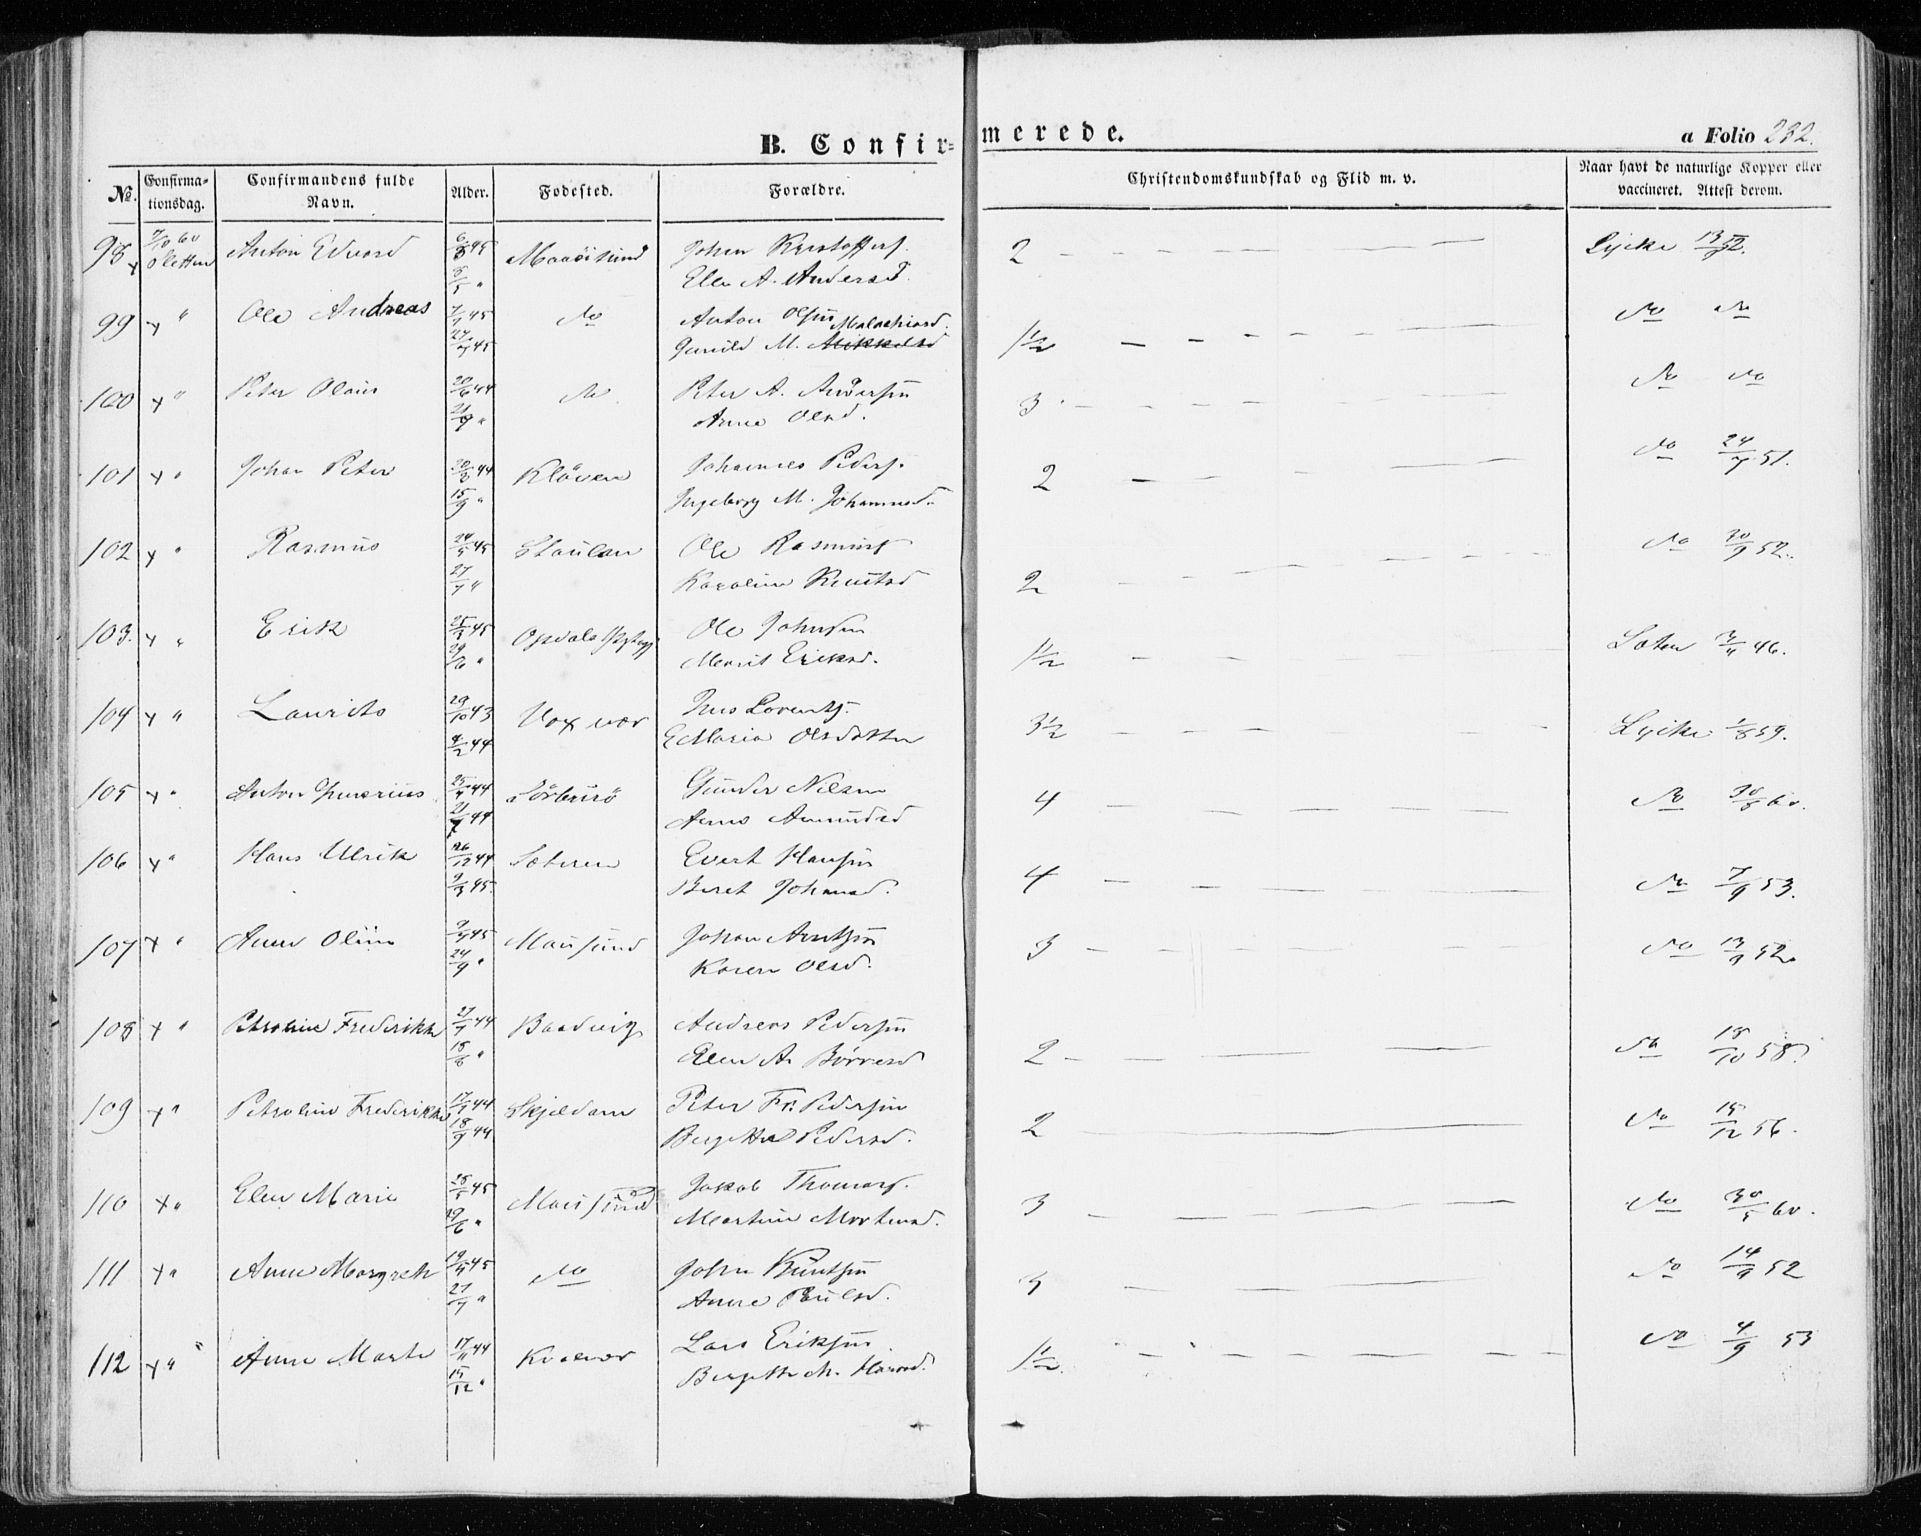 B. Confir=merede.
a Folio 232.
No. Confirma-tionsdag. Confirmandens fulde Navn. Alder. Fødested. Forældre. Christendomskundskab og Flid m. v. Naar havt de naturlige Kopper eller vaccineret. Attest derom.
98 7/10 60 Anton Edvard 45 Johan Kristoffers. 2 Lycke 13/9 52.
Sletten Ellen A. Andersd.
99 " Ole Andreas 7/7 45 Do Anton Olsen Malachiasd. 1½ Do Do
45 Gunild M. Mikkelsd
100 " Peter Olaus 20/6 44 Do Peter A. Andersen 3 Do Do
21/9 " Anne Olsd.
101 " Johan Peter 20/8 44 Kløven Johannes Peders. 2 Do 24/7 51.
15/9 " Ingeborg M. Johannesd.
102 " Rasmus 24/5 45 Staulan Ole Rasmus 2 Do 30/9 52.
27/7 " Karoline Knutsd
103. " Erik 25/3 45 Opdals Ole Johnsen 1½ 46.
29/6 " Marit Eriksd.
104 " Laurits 29/10 43 Vox vær Jens Lorents. 3½ Lycke 1/8 59.
4/2 44 E Maria Olsdatter
105 " Anton 25/4 44 Gunder Nilsen 4 Do 30/5 60.
21/7 44 Anne Amundsd
106 " Hans Ulrik 26/12 44 Sæteren Evert Hansen 4 Do 7/9 53.
9/3 45. Beret Johansd.
107 " Anne Oline 9/7 45 Mausund Johan Arntsen 3 Do 13/9 52.
24/9 " Karen Olsd.
108 " Petroline Frederikke 27/7 44 Baadvig Andreas Pedersen 2 Do 18/10 58.
18/8 " Elen A. Børresd
109 " Petroline Frederikke 17/7 44 Skjeldarn Peter Fr. Pedersen 2 Do 15/12 56.
18/9 44 Bergitta Pedersd.
110 " Elen Marie 28/5 45 Mausund Jakob Thomas. 3 Do 30/5 60.
29/6 " Martine Mortensd.
111 " Anne Margreth 19/4 45 Do John Knutsen 3 Do 14/9 52
27/7 " Anne Paulsd.
112 " Anne Marta 17/11 44 Kvalvær Lars Eriksen 1½. Do 4/9 53
15/12 " Bergitte M.